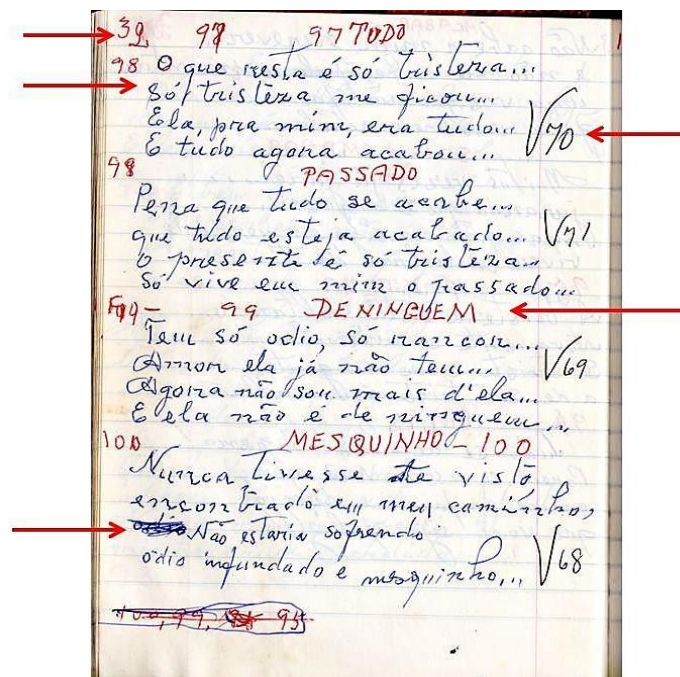 39. 97 97 TUDO
98 O que resta é só tristeza...
só tristeza me ficou...
Ela, pra mim, era tudo... V70
E tudo agora acabou...
98 PASSADO
Pena que tudo se acabe...
que tudo esteja acabado... V71
O presente é só tristeza...
Só vive em mim o passado...
99 DE NINGUEM
Tem só odio, só rancor...
Amor ela já não tem... V69
Agora não sou mais d'ela...
E ela não é de ninguem...
100 MESQUINHO - 100
Nunca tivesse te visto
encontrado em meu caminho,
Não estaria sofrendo
odio infundado e mesquinho... V68
100, 99, 95